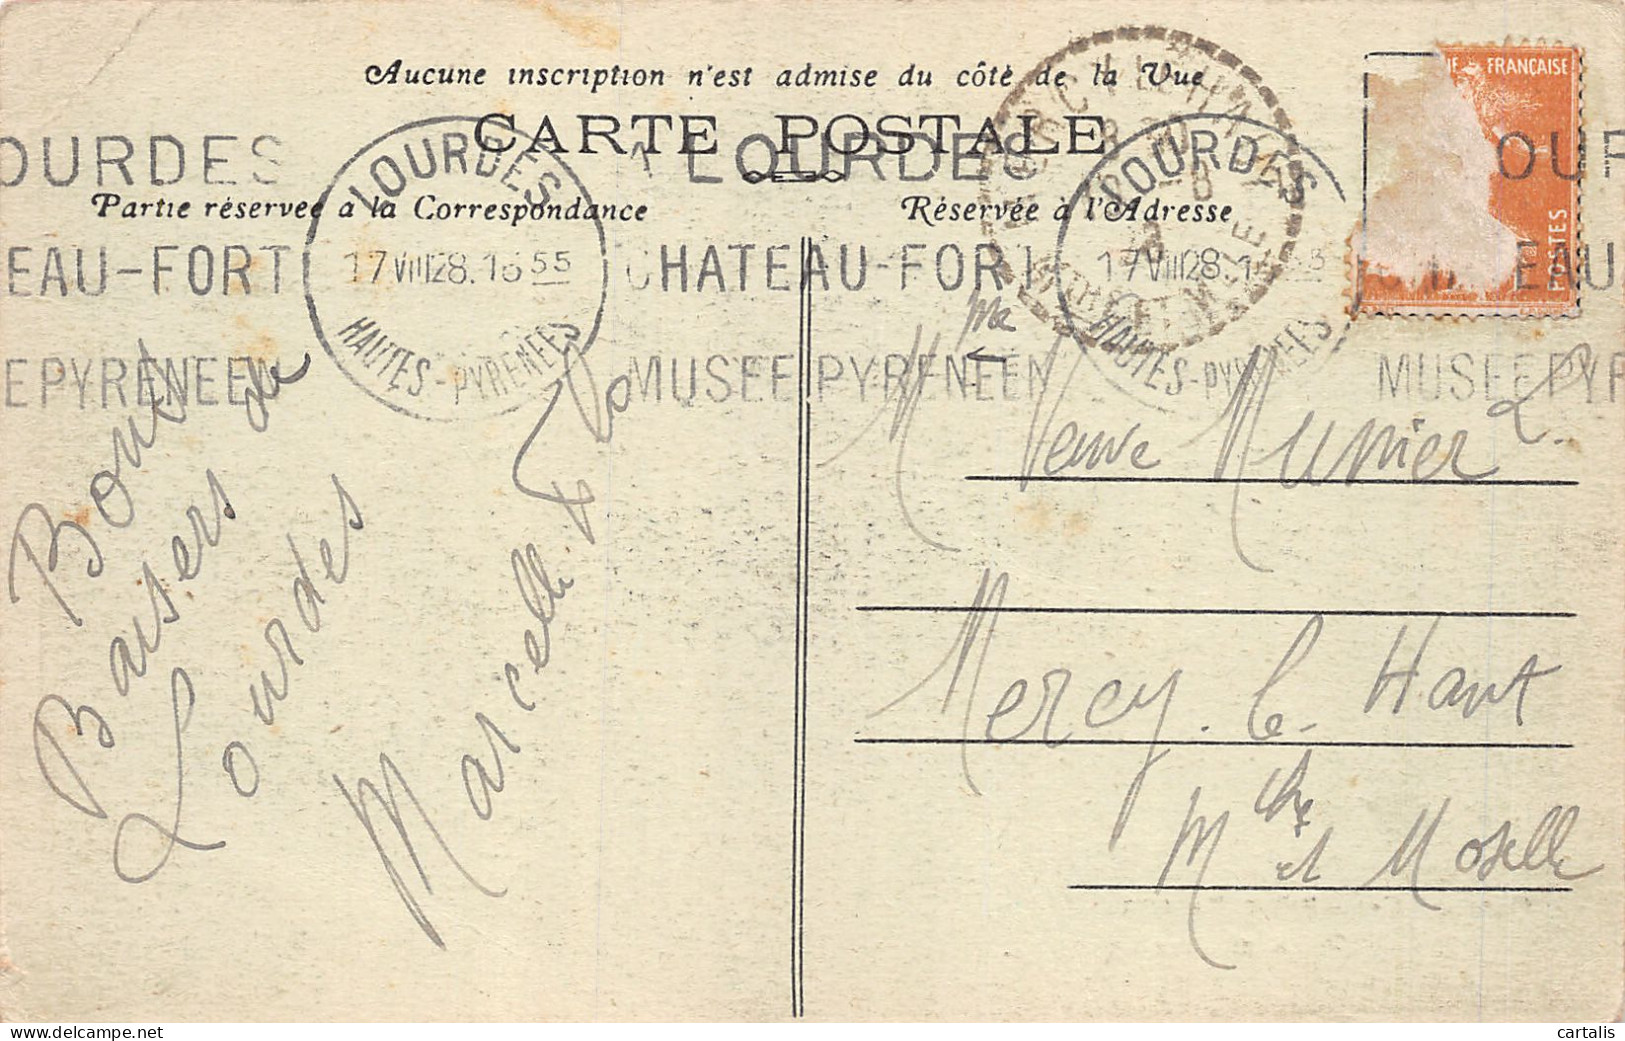 Aucune inscription n'est admise du côté de la Vue
CARTE POSTALE
Partie réservée à la Correspondance
Réservée à l'Adresse
OURDES
EAU-FORT
EPYRENEEN
LOURDES
17 VIII 28. 16 55
HAUTES-PYRENEES
LOURDES
CHATEAU-FORT
MUSEE PYRENEEN
LOURDES
17 VIII 28. 1
HAUTES-PYRENEES
OUR
EAU
MUSEE PYR
FRANÇAISE
POSTES
Bons
Baisers de
Lourdes
Marcelle
Mme
Veuve Munier
Mercy-le-Haut
Mthe et Moselle
cartalis